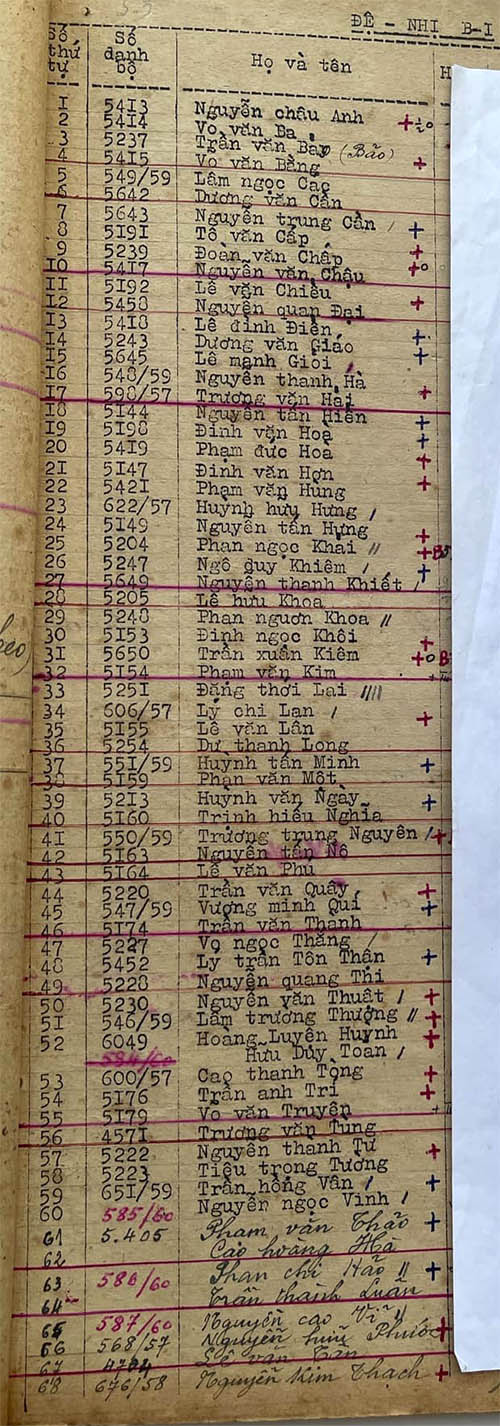 ĐỆ - NHỊ B-I
Số thứ tự Số danh bộ Họ và tên H
I 5413 Nguyễn châu Anh +
2 5414 Vo văn Ba
3 5237 Trần văn Bay (Bảo)
4 5415 Vo văn Bằng +
5 549/59 Lâm ngọc Cac
6 5642 Dương văn Cẩn
7 5643 Nguyễn trung Cần /
8 5I9I Tô văn Cấp +
9 5239 Đoàn văn Chấp +
I0 54I7 Nguyễn văn Chậu +o
II 5I92 Lê văn Chiêu
I2 5458 Nguyễn quan Đại +
I3 54I8 Lê đình Điền
I4 5243 Dương văn Giáo +
I5 5645 Lê mạnh Giỏi +
I6 548/59 Nguyễn thanh Hà
I7 598/57 Trương văn Hai +
I8 5I44 Nguyễn tấn Hiển
I9 5I98 Đinh văn Hoa +
20 54I9 Phạm đức Hoa +
2I 5I47 Đinh văn Hơn +
22 542I Phạm văn Hùng +
23 622/57 Huỳnh hưu Hưng /
24 5I49 Nguyễn tấn Hưng
25 5204 Phan ngọc Khai // +
26 5247 Ngô duy Khiêm / +
27 5649 Nguyễn thanh Khiết /
28 5205 Lê hưu Khoa
29 5248 Phan nguơn Khoa //
30 5I53 Đinh ngọc Khôi +
3I 5650 Trần xuân Kiêm +o B
32 5I54 Phạm văn Kim
33 525I Đặng thới Lai ////
34 606/57 Lý chi Lan / +
35 5I55 Lê văn Lân
36 5254 Dư thanh Long
37 55I/59 Huỳnh tấn Minh +
38 5I59 Phan văn Một
39 52I3 Huỳnh văn Ngày +
40 5I60 Trịnh hiếu Nghĩa
4I 550/59 Trương trung Nguyên / +
42 5I63 Nguyễn tấn Nô
43 5I64 Lê văn Phú
44 5220 Trần văn Quây +
45 547/59 Vương minh Quí +
46 5I74 Trần văn Thanh
47 5227 Vo ngọc Thăng /
48 5452 Ly trần Tôn Thận +
49 5228 Nguyễn quang Thi
50 5230 Nguyễn văn Thuật / +
5I 546/59 Lâm trương Thưởng // +
52 6049 Hoàng Luyện Huỳnh +
584/60 Hưu Duy Toan /
53 600/57 Cao thanh Tòng +
54 5I76 Trần anh Trí +
55 5I79 Vo văn Truyện
56 457I Trương văn Tung
57 5222 Nguyễn thanh Tư +
58 5223 Tiêu trọng Tường
59 65I/59 Trần hồng Vân / +
60 585/60 Nguyễn ngọc Vinh /
61 5.405 Phạm văn Thảo +
62 Cao hoang Hà
63 586/60 Phan chi Hảo // +
64 Trần thành Luân
65 587/60 Nguyễn cao Vĩ //
66 568/57 Nguyễn hữu Phước +
67 Lê văn
68 676/58 Nguyễn Kim Thạch +